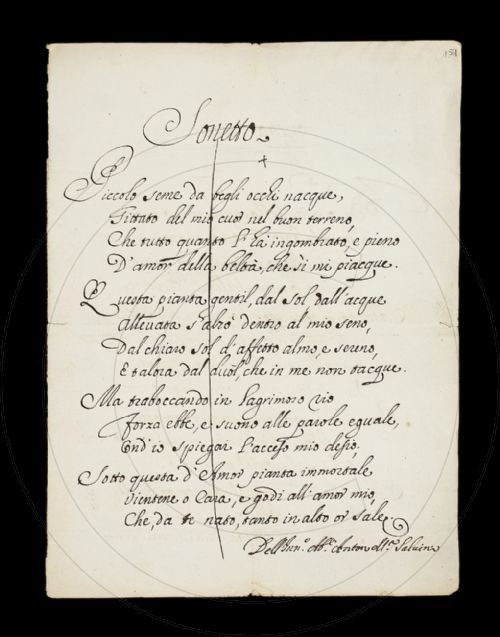 151
Sonetto.
Piccolo seme da begli occhi nacque,
Gittato del mio cuor nel buon terreno,
Che tutto quanto l'hà ingombrato, e pieno
D'amor della beltà, che sì mi piacque.
Questa pianta gentil, dal Sol dall'acque
Allevata s'alzò dentro al mio seno,
Dal chiaro Sol d'affetto almo, e sereno,
E talora dal duol, che in me non tacque.
Ma traboccando in lagrimoso rio
Forza ebbe, e suono alle parole eguale,
Ond'io spiegai l'acceso mio desio.
Sotto questa d'Amor pianta immortale
Vientene o Cara, e godi all'amor mio,
Che, da te nato, tanto in alto or sale.
Dell' Ab.e Anton M.a Salvini